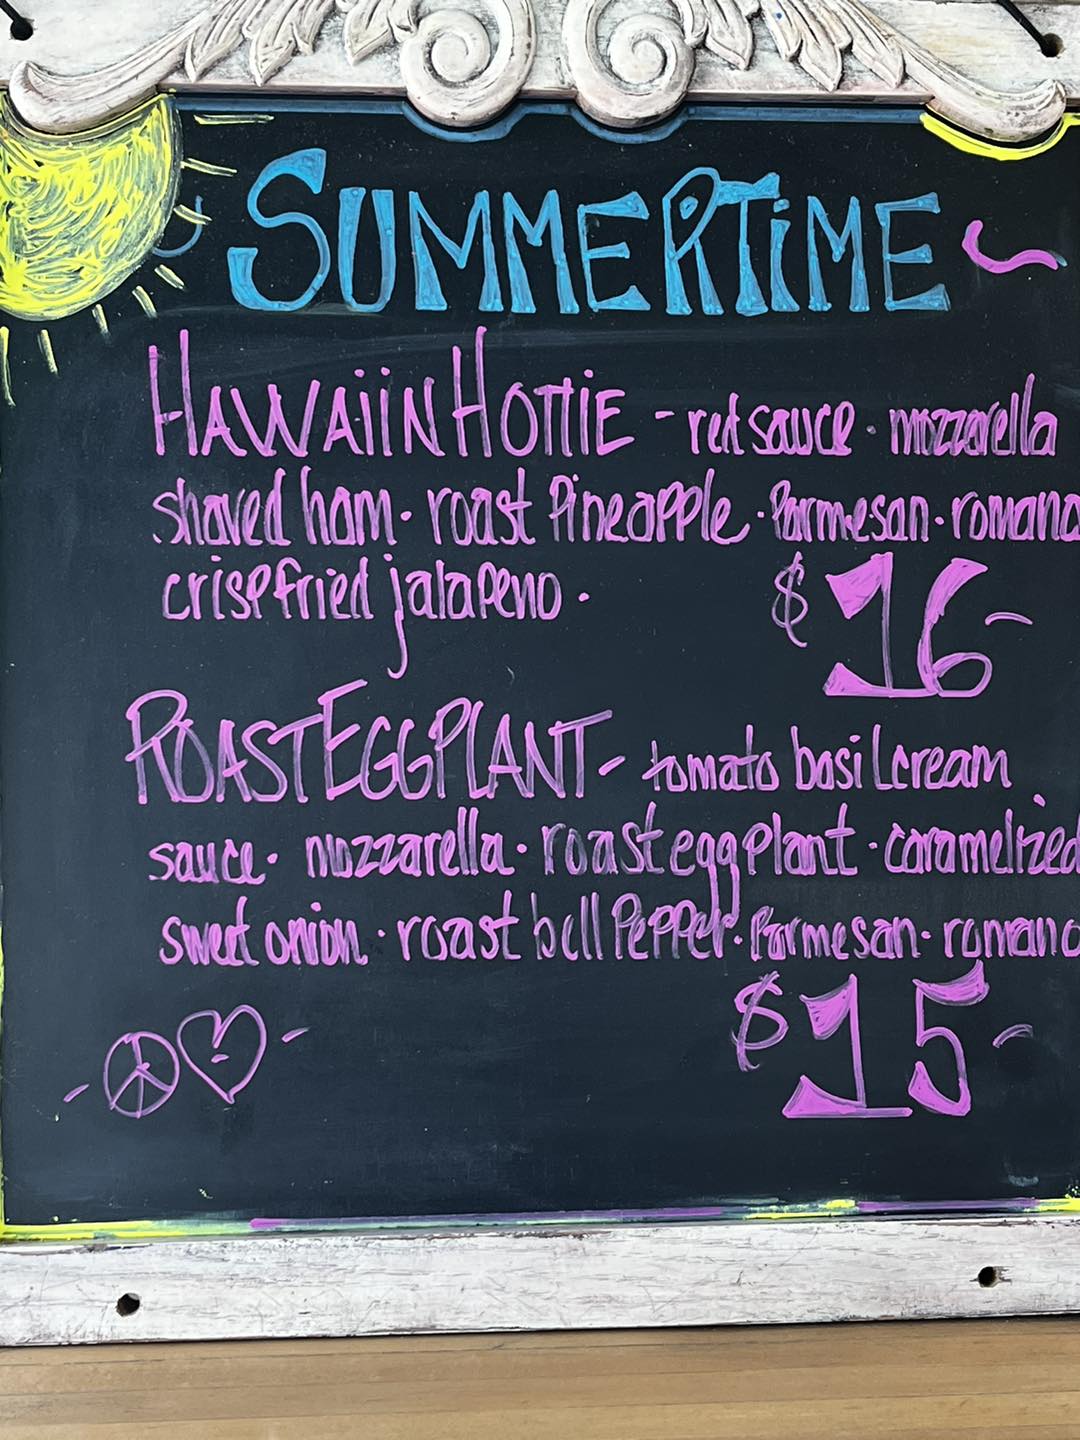 SUMMERTiME
HAWAiiN HOTTIE - red sauce · mozzarella
shaved ham · roast Pineapple · Parmesan · romano
crisp fried jalapeno ·
$16-
ROAST EGGPLANT - tomato basil cream
sauce · mozzarella · roast eggplant · caramelized
sweet onion · roast bell Pepper · Parmesan · romano
$15-